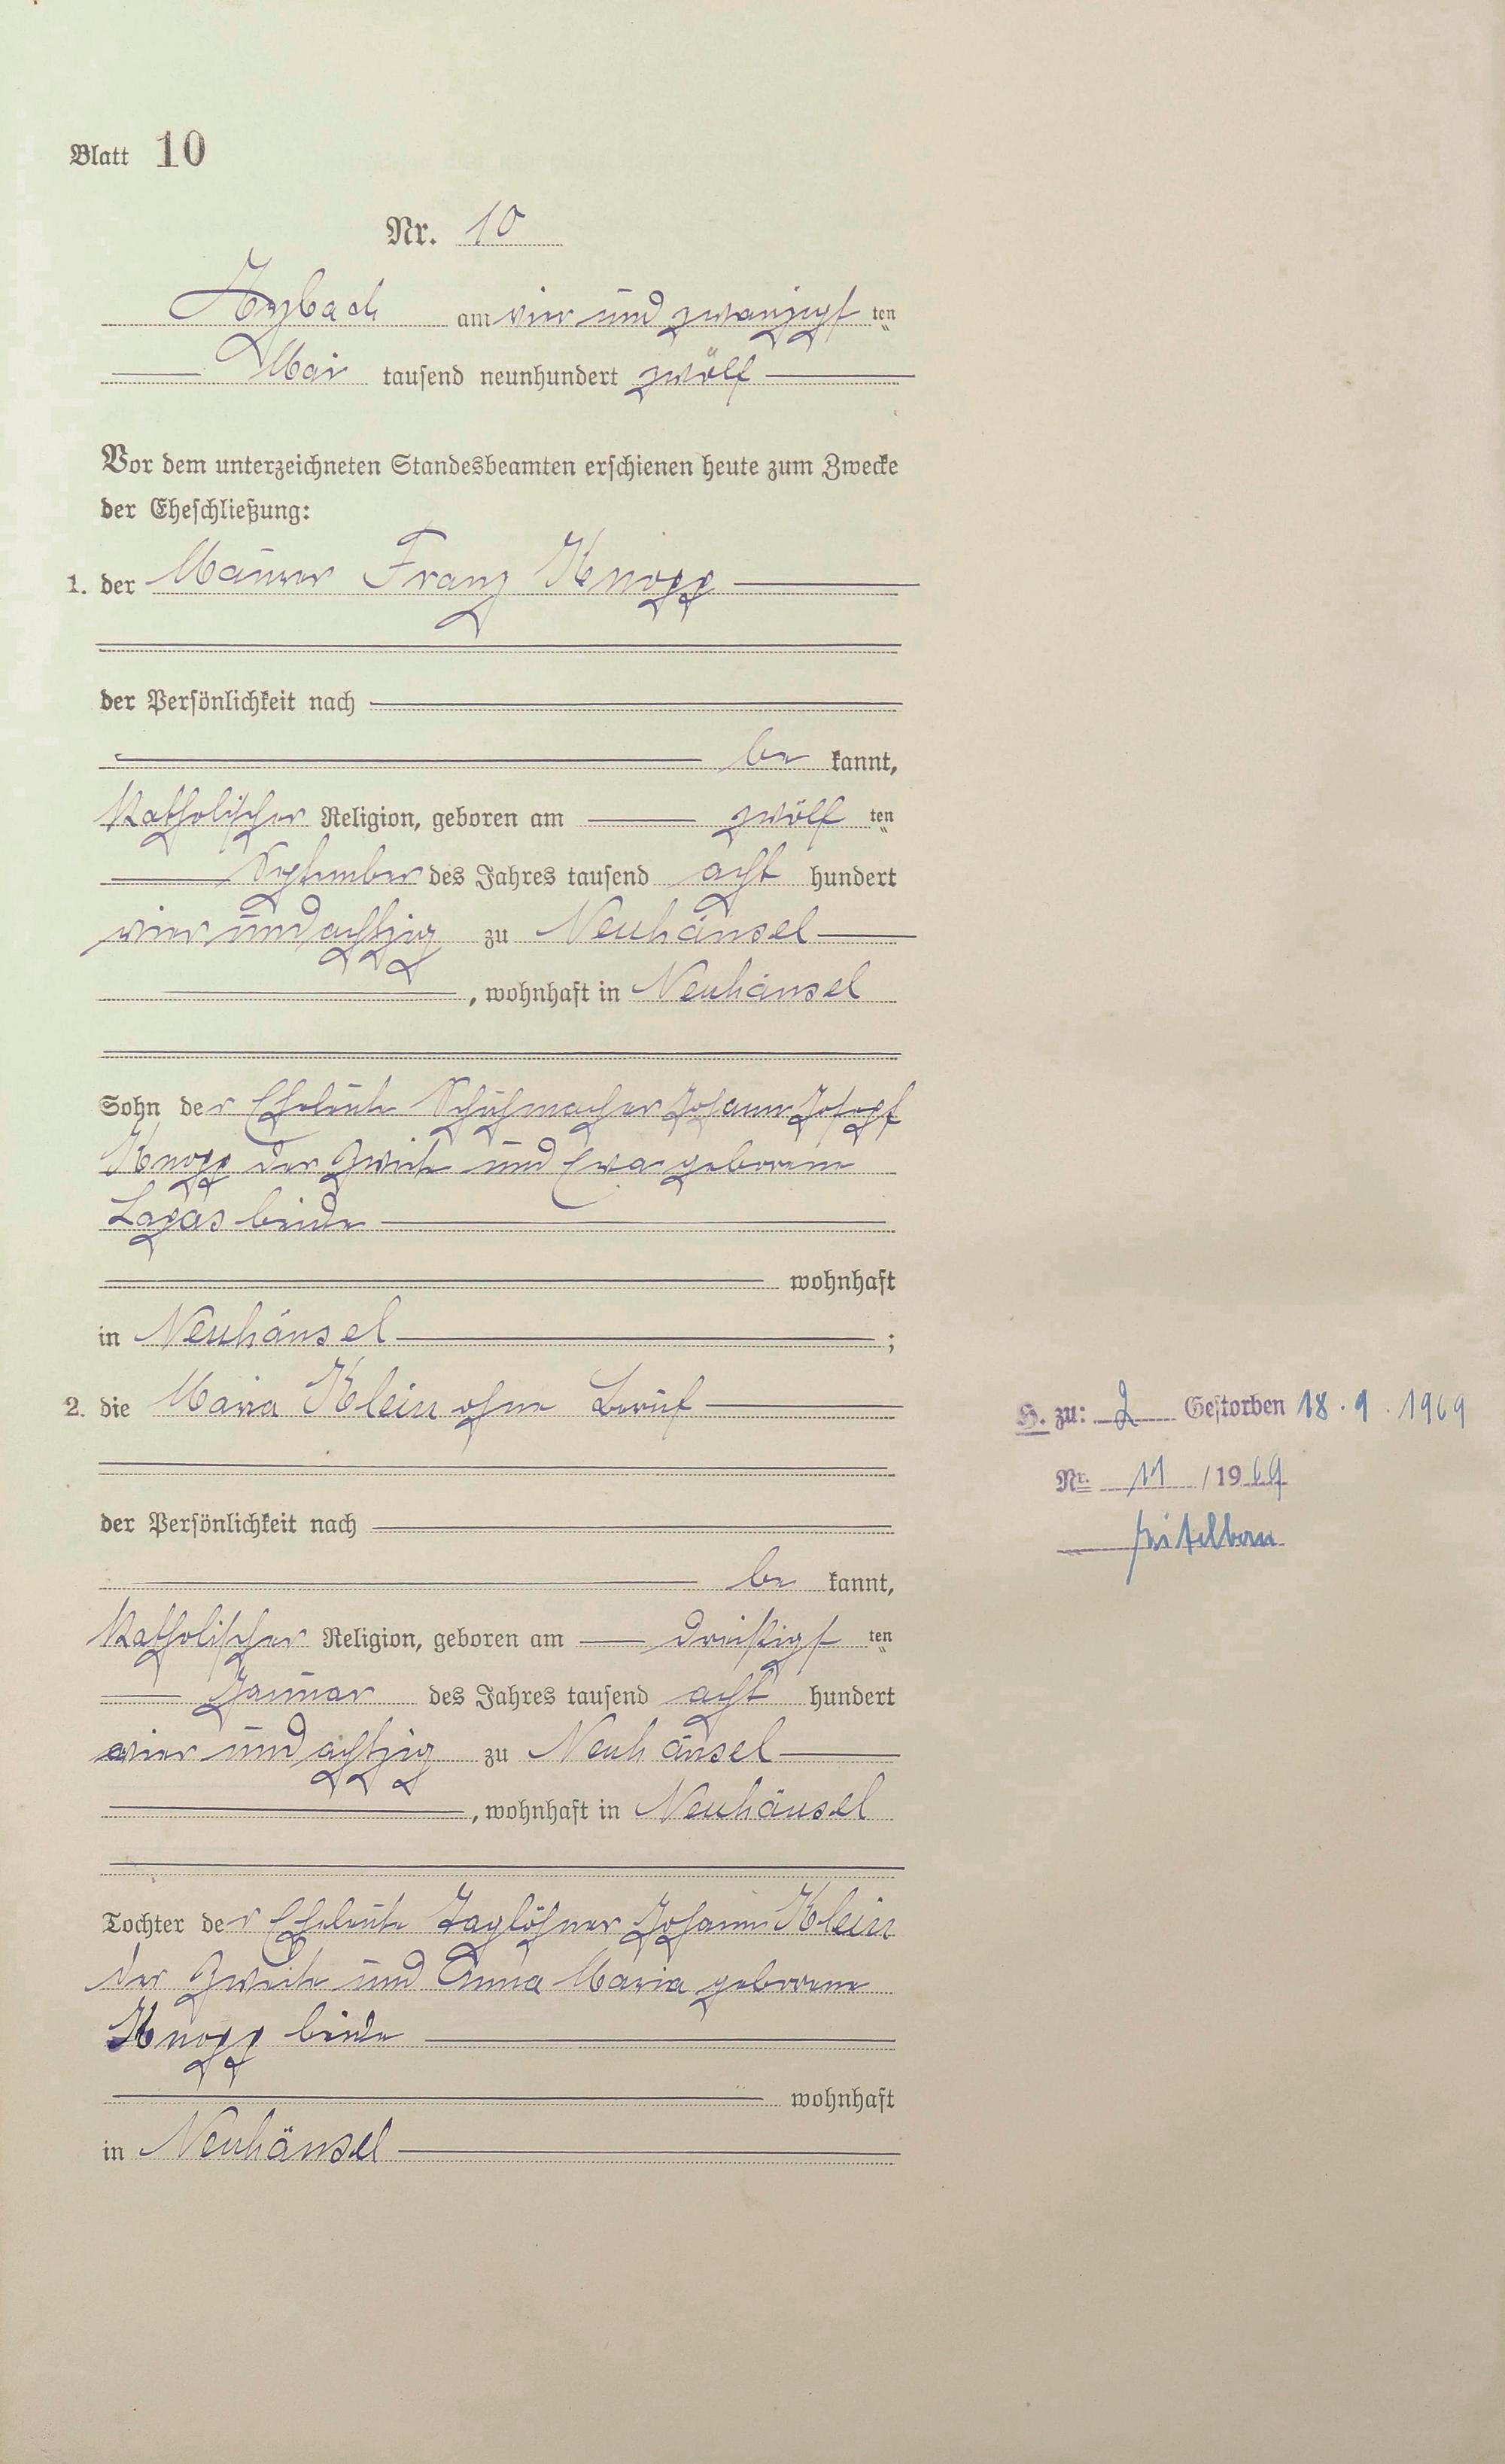 Blatt 10
Nr. 10
Arzbach am vier und zwanzigsten
Mai tausend neunhundert zwölf
Vor dem unterzeichneten Standesbeamten erschienen heute zum Zwecke
der Eheschließung:
1. der Maurer Franz Knopp
der Persönlichkeit nach
be kannt,
katholischer Religion, geboren am zwölf ten
September des Jahres tausend acht hundert
vier und achtzig zu Neuhäusel
, wohnhaft in Neuhäusel
Sohn der Eheleute Schuhmacher Johann Josef
Knopp der Zweite und Eva geborene
beide
wohnhaft
in Neuhäusel ;
2. die Maria Klein ohne Beruf
H. zu: 2 Gestorben 18.9.1969
Nr. 11 /1969
der Persönlichkeit nach
be kannt,
katholischer Religion, geboren am dreißigsten
Januar des Jahres tausend acht hundert
vier und achtzig zu Neuhäusel
, wohnhaft in Neuhäusel
Tochter der Eheleute Taglöhner Johann Klein
der Zweite und Anna Maria geborene
Knopp beide
wohnhaft
in Neuhäusel